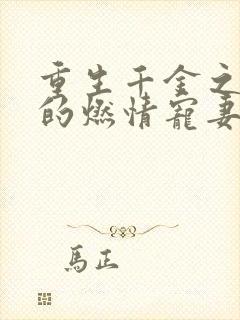 重生千金之
的燃情寵妻
馬正